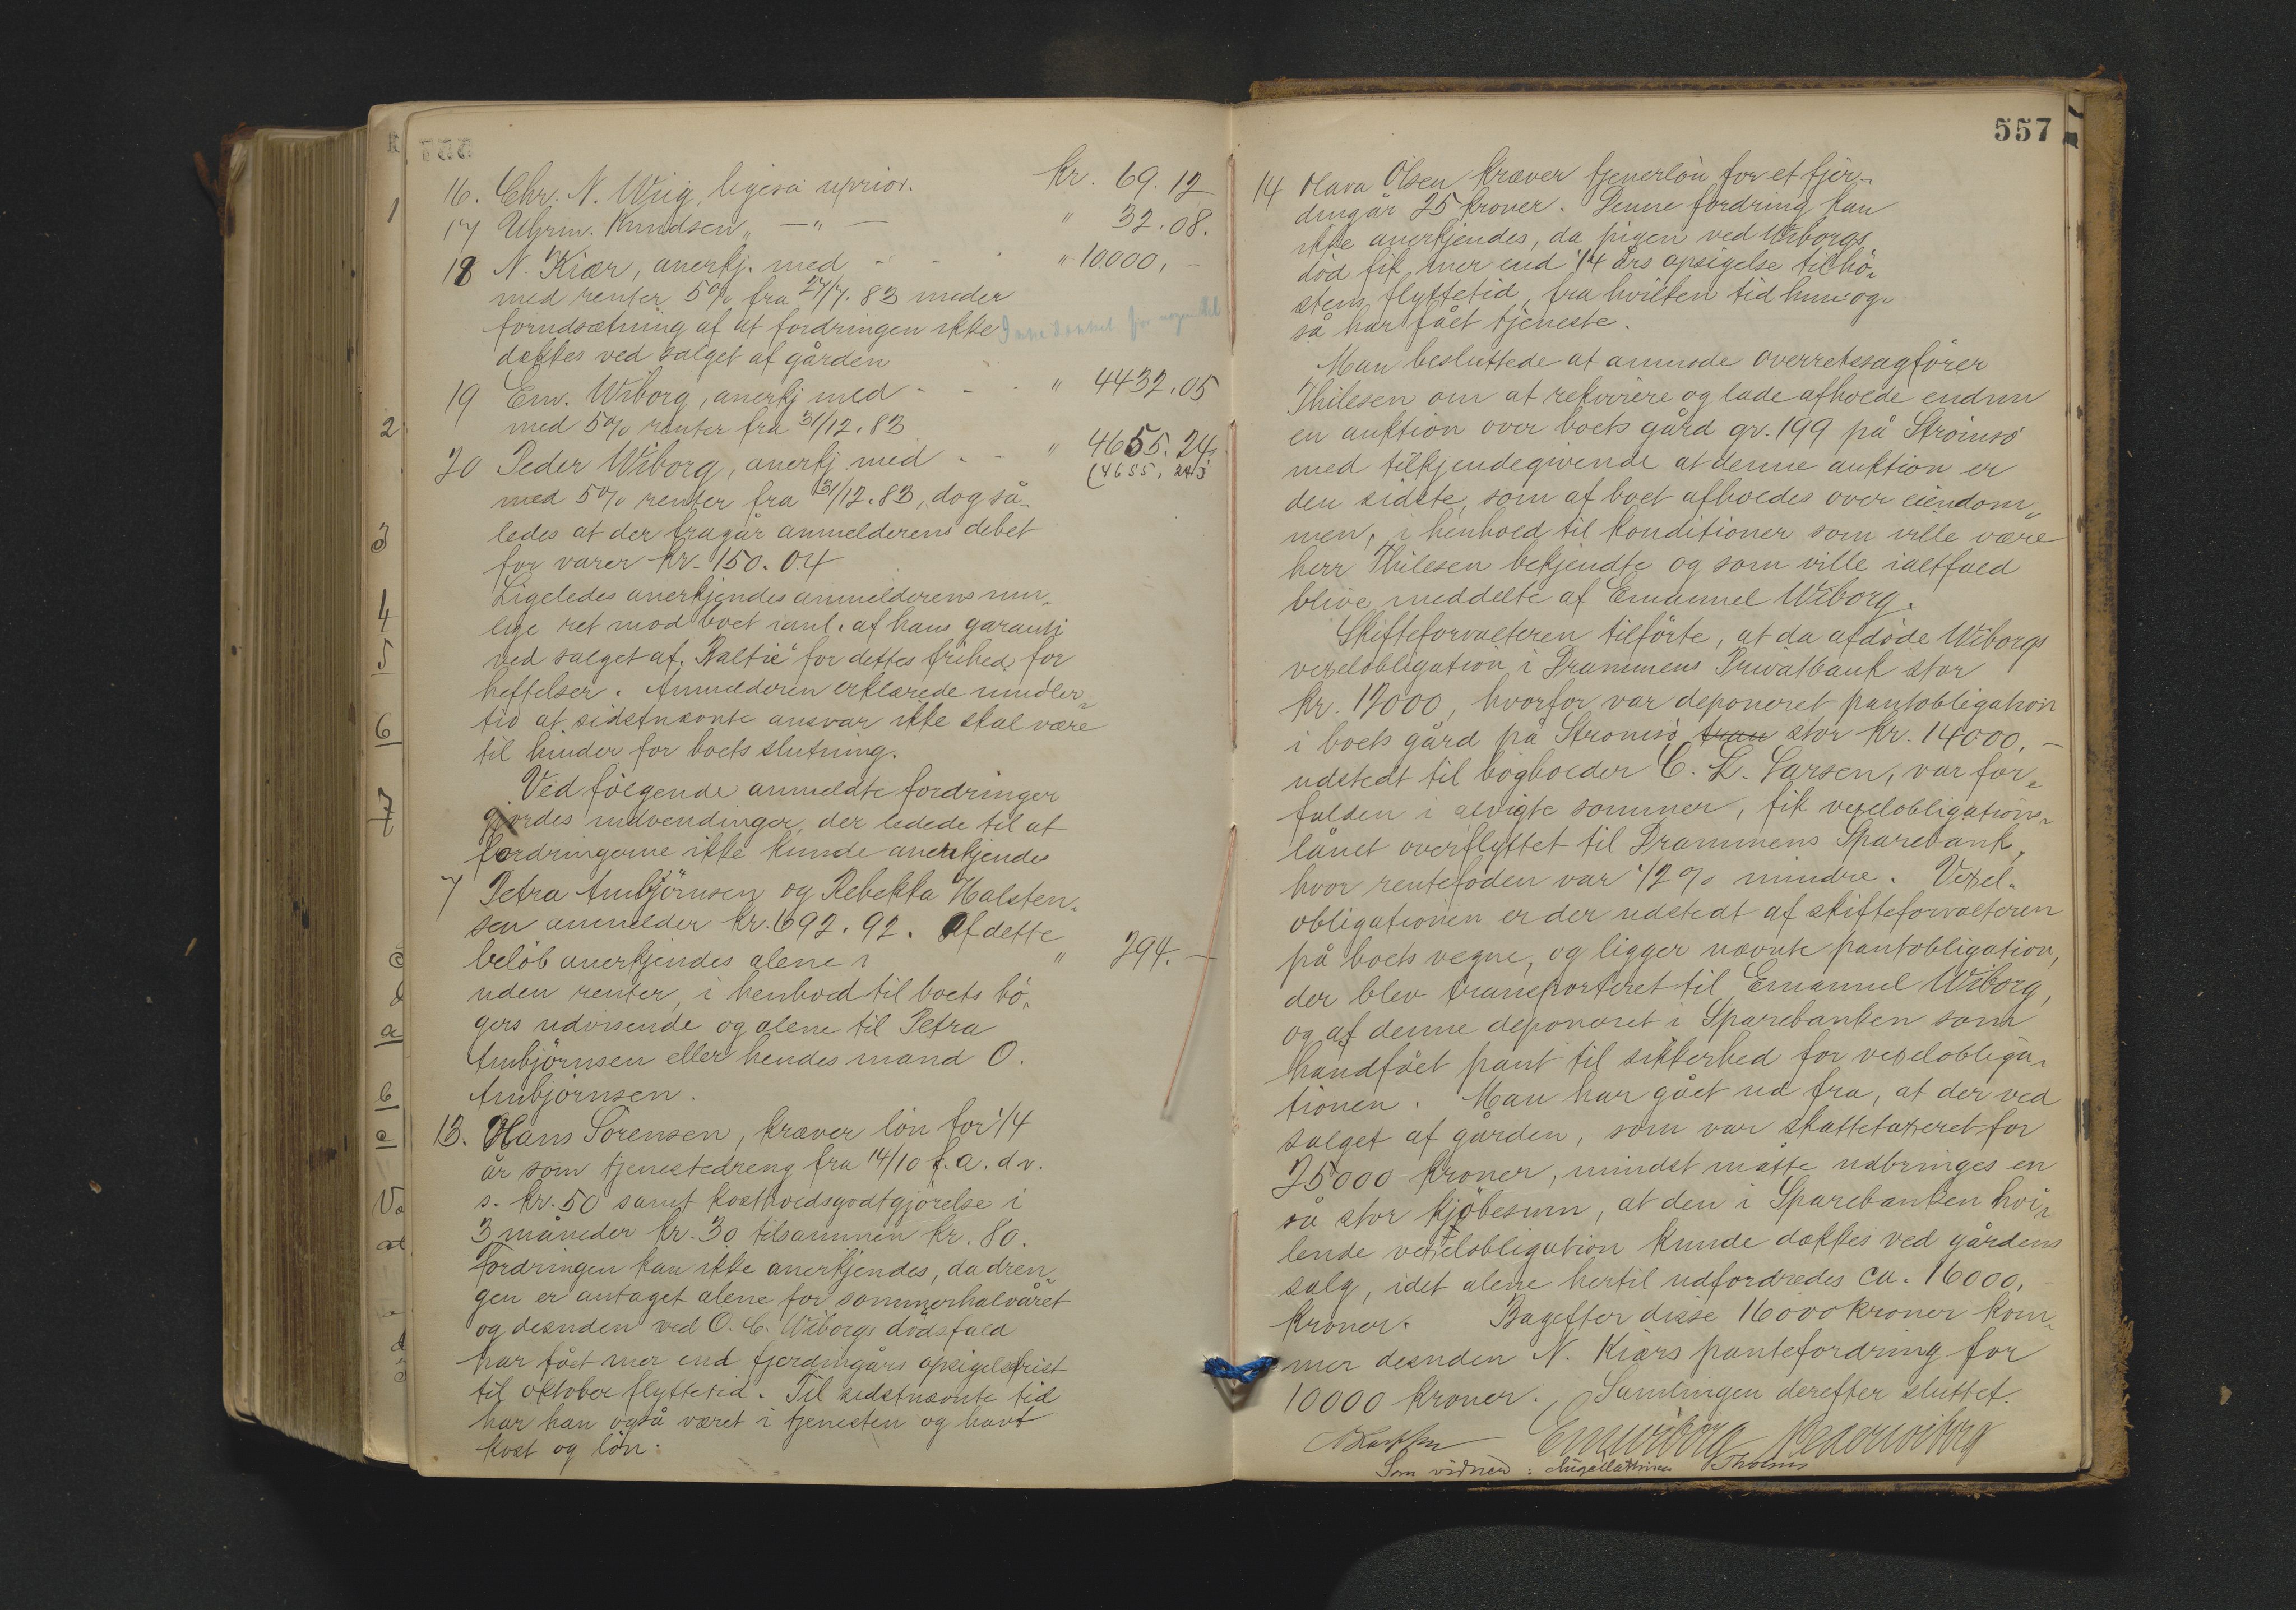 16. Chr. N. Wiig, ligeså uprior. kr. 69.12
17 Uhrm. Knudsen „ — „ — " 32.08.
18 N. Kiær, anerkj. med - - - " 10000, -
med renter 5% fra 27/7. 83 under
forudsætning af at fordringen ikke
dækkes ved salget af gården
19 Em. Wiborg, anerkj med - - - " 4432.05
med 5% renter fra 31/12. 83
20 Peder Wiborg, anerkj. med - - " 4655.24.
(4655.24)
med 5% renter fra 31/12. 83, dog så-
ledes at der fragår anmelderens debet
for varer kr. 150.04
Ligeledes anerkjendes anmelderens mu-
lige ret mod boet i anl. af hans garanti
ved salget af "Baltic" for dettes frihed for
heftelser. Anmelderen erklærede imidler-
tid at sidstnævnte ansvar ikke skal være
til hinder for boets slutning.
Ved følgende anmeldte fordringer
gjordes indvendinger, der ledede til at
fordringerne ikke kunde anerkjendes
7 Petra Ambjörnsen og Rebekka Halsten-
sen anmelder kr. 692.92. Af dette
beløb anerkjendes alene " 294. —
uden renter, i henhold til boets bö-
gers udvisende og alene til Petra
Ambjörnsen eller hendes mand O.
Ambjörnsen.
13. Hans Sörensen, kræver lön for 1/4
år som tjenestedreng fra 14/10 f. a. d. v.
s. kr. 50 samt kostholdsgodtgjörelse i
3 måneder kr. 30 tilsammen kr. 80.
Fordringen kan ikke anerkjendes, da dren-
gen er antaget alene for sommerhalvåret
og desuden ved O. C. Wiborgs dödsfald
har fået mer end fjerdingårs opsigelsfrist
til oktober flyttetid. Til sidstnævnte tid
har han også været i tjenesten og havt
kost og lön.
557
14 Olava Olsen kræver tjenerlön for et fjer-
dingår 25 kroner. Denne fordring kan
ikke anerkjendes, da pigen ved Wiborgs
död fik mer end 1/4 års opsigelse til hö-
stens flyttetid, fra hvilken tid hun og-
så har fået tjeneste.
Man besluttede at anmode overretssagförer
Thilesen om at rekvirere og lade afholde endnu
en auktion over boets gård gr. 199 på Strömsö
med tilkjendegivende at denne auktion er
den sidste, som af boet afholdes over eiendom-
men, i henhold til konditioner som ville være
herr Thilesen bekjendte og som ville ialtfald
blive meddelte af Emanuel Wiborg.
Skifteforvalteren tilförte, at da afdöde Wiborgs
vexelobligation i Drammens Privatbank stor
kr. 12000, hvorfor var deponeret pantobligation
i boets gård på Strömsö stor kr. 14000, —
udstedt til bogholder C. L. Larsen, var for-
falden i afvigte sommer, fik vexelobligations-
lånet overflyttet til Drammens Sparebank,
hvor rentefoden var 1/2 % mindre. Vexel-
obligationen er der udstedt af skifteforvalteren
på boets vegne, og ligger nævnte pantobligation,
der blev transporteret til Emanuel Wiborg,
og af denne deponeret i Sparebanken som
håndfået pant til sikkerhed for vexelobliga-
tionen. Man har gået ud fra, at der ved
salget af gården, som var skattetaxeret for
25000 kroner, mindst måtte udbringes en
så stor kjöbesum, at den i Sparebanken hvi-
lende vexelobligation kunde dækkes ved gårdens
salg, idet alene hertil udfordredes ca. 16000, -
kroner. Bagefter disse 16000 kroner kom-
mer desuden N. Kiærs pantefordring for
10000 kroner. Samlingen derefter sluttet.
Em Wiborg Peder Wiborg
Som vidner: